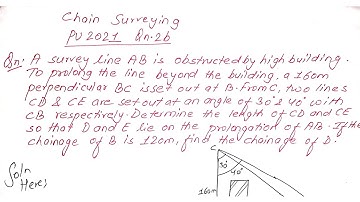 Chain Surveying
PU 2021 Qn. 2b
Qn: A survey line AB is obstructed by high building.
To prolong the line beyond the building, a 160m
perpendicular BC is set out at B. from C, two lines
CD & CE are set out at an angle of 30° & 40° with
CB respectively. Determine the length of CD and CE
so that D and E lie on the prolongation of AB. If the
chainage of B is 120m, find the chainage of D.
Soln
Here;
C
30°
40°
160m